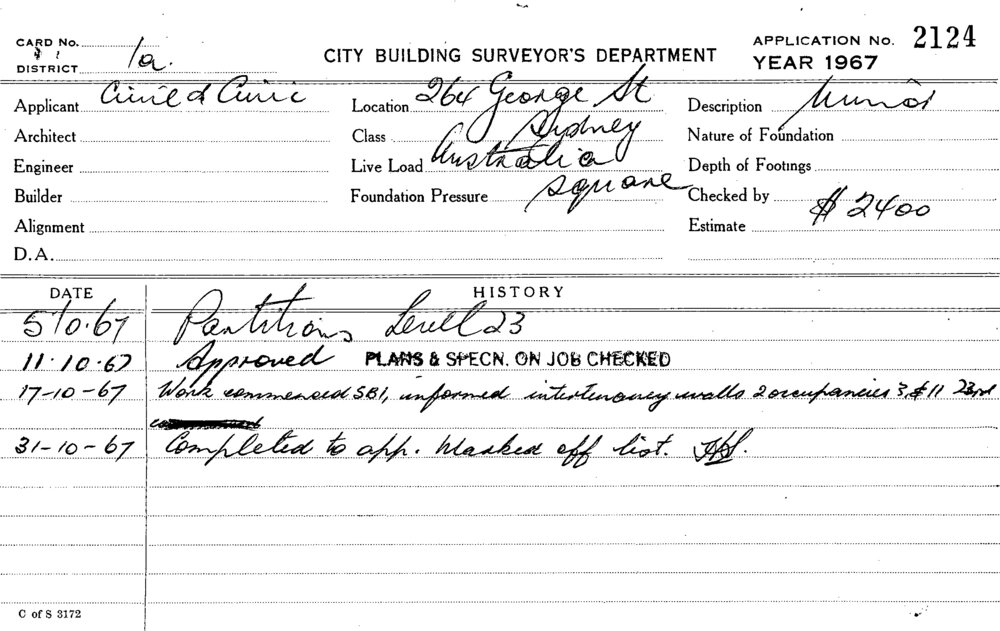 CARD No.
& 1a.
DISTRICT
CITY BUILDING SURVEYOR'S DEPARTMENT
APPLICATION No. 2124
YEAR 1967
Applicant Civil & Civic Location 264 George St Description Minor
Architect Class Sydney Nature of Foundation
Engineer Live Load Australia Depth of Footings
Builder Foundation Pressure Square Checked by
Alignment Estimate $2400
D.A.
DATE HISTORY
5/10.67 Partitions Level 23
11.10.67 Approved PLANS & SPECN. ON JOB CHECKED
17-10-67 Work commenced SBI, informed intertenancy walls 2 occupancies 23rd
31-10-67 Completed to app. Marked off list.
C of S 3172